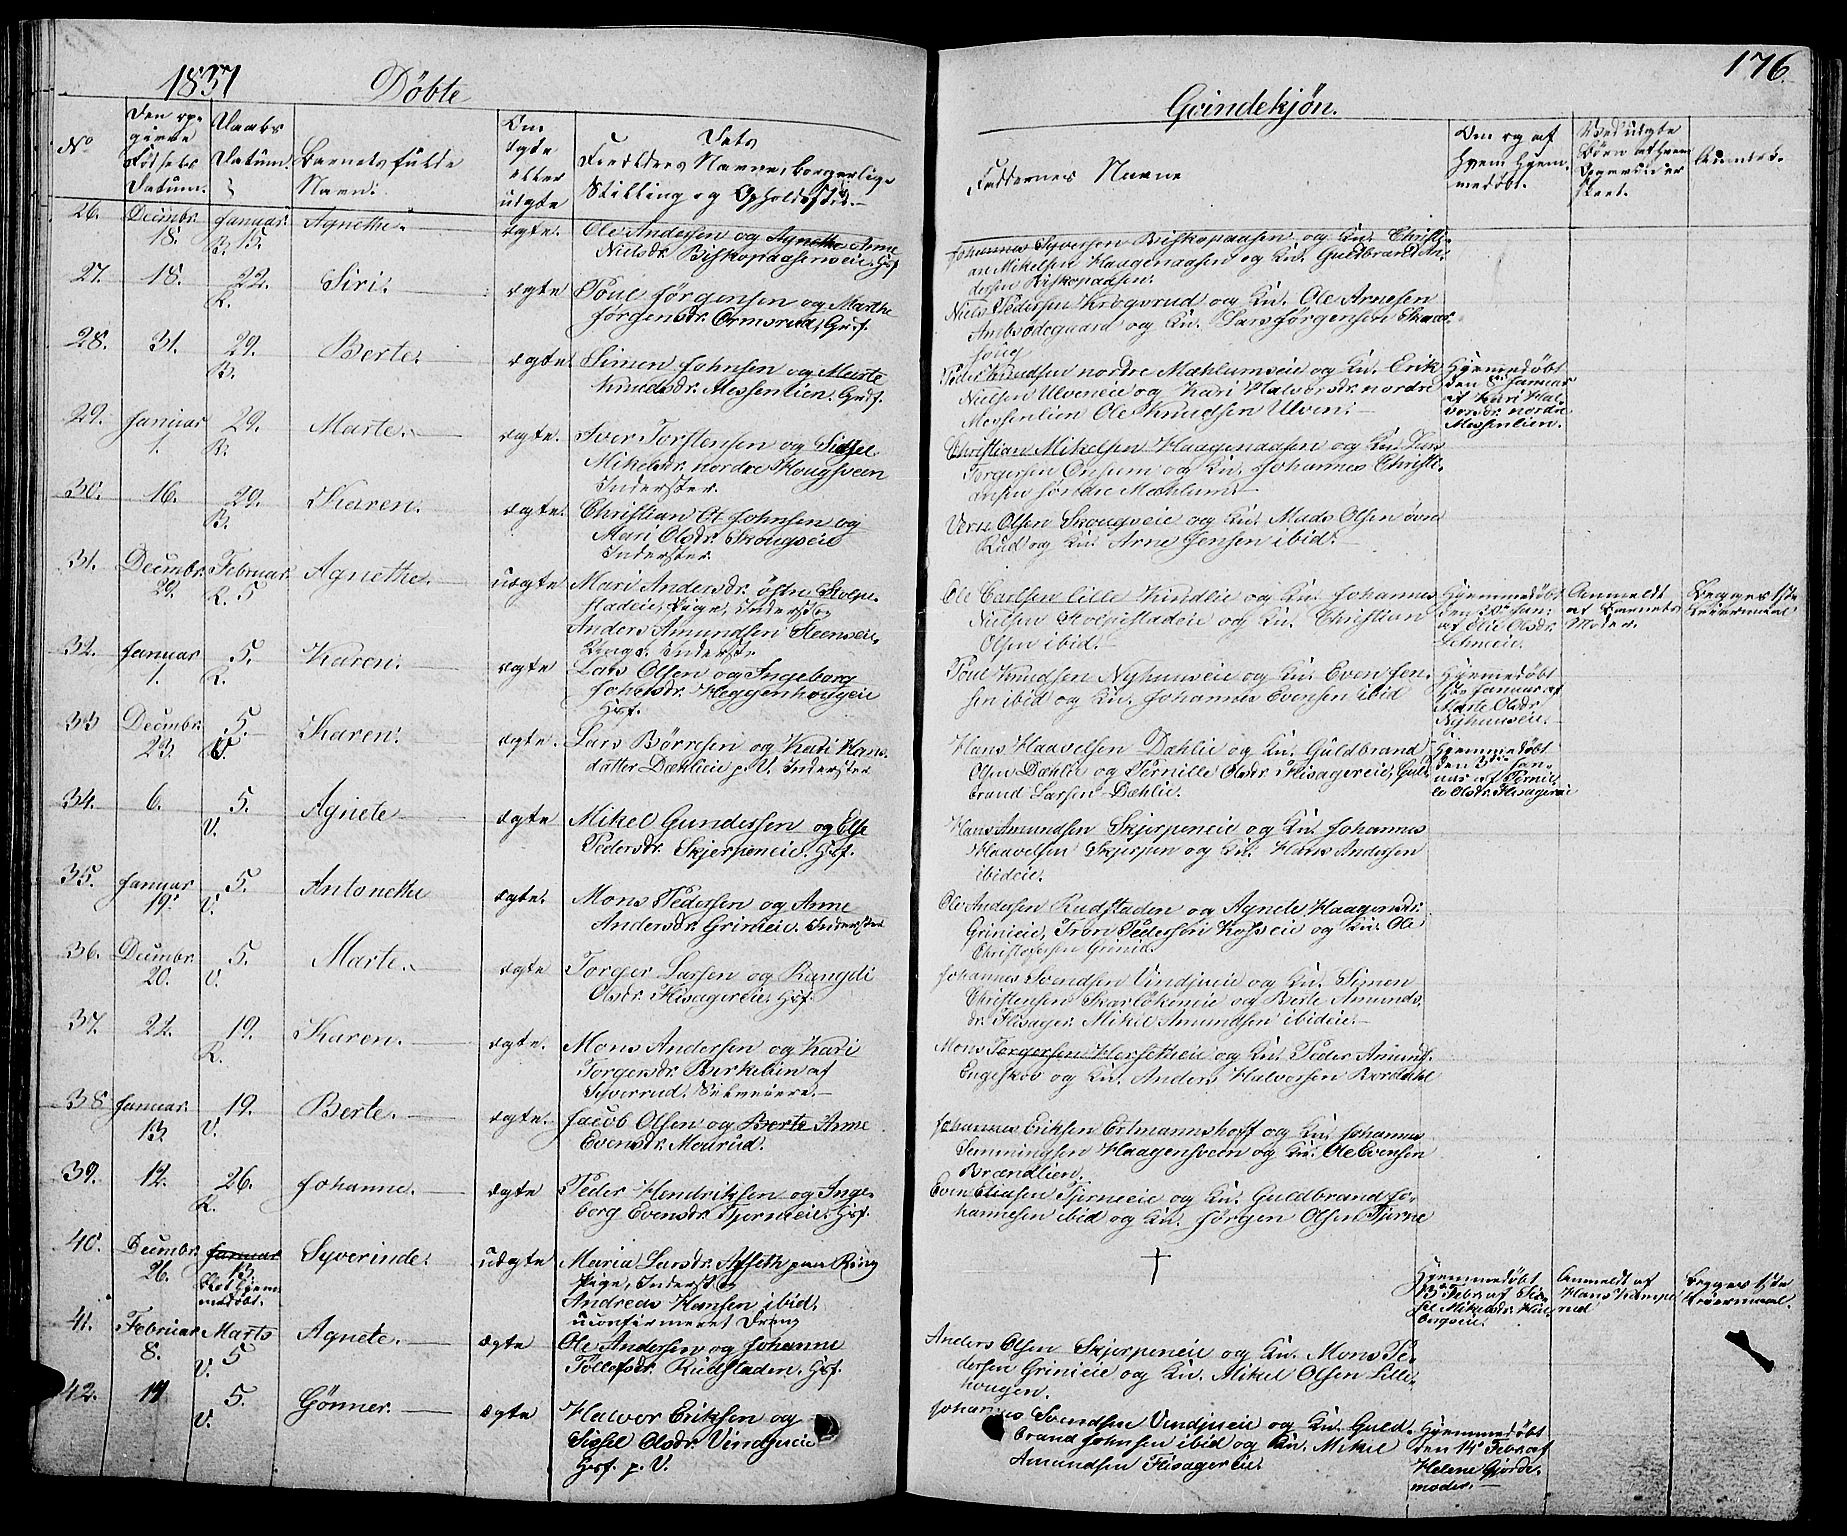 1837 Døbte
Qvindekjøn. 176
No
Den op-
givne
Fødsels
Datum.
Daabs
Datum.
Barnets fulde
Navn.
Om
ægte
eller
uægte
Dets
Forældres Navne, borgerlige
Stilling og Opholdssted.
Faddernes Navne
Hvem Hjem-
medøbt.
Anmærk.
26. Decembr. 18. Januar R. 15. Agnethe. ægte. Ole Andersen og Agnethe Anne
Nielsdr. Biskopaasenseie. Gsf
Johannes Syversen Biskopaasen og Kn. Christi-
an Mikelsen Haagenaasen og Kn. Guldbrand An-
dersen Biskopaasen.
27. 18. 22. R. Siri. ægte Poul Jørgensen og Marthe
Jørgensdr. Ormsrud, Grsf.
Niels Pedersen Krogsrud og Kn. Ole Arnesen
og Kn. Lars Jørgensen
28. 31. 29. R. Berte. ægte. Simen Johnsen og Marte
Knudsdr. Messenlien. Grsf.
Peder Knudsen nordre Mæhlumseie og Kn. Erik
Nielsen Ulveneie og Kari Halvorsdr. nordre
Messenlien Ole Knudsen Ulven.
Hjemmedøbt
den 8 Januar
af Kari Hal-
vorsdr. nordre
Messenlien.
29. Januar 1. 29. R. Marte. ægte. Iver Torstensen og Sidsel
Mikelsdr. nordre Hougsveen
Inderster.
Christian Mikelsen Haagenaasen og Kn.
Torgersen Onsum og Kn. Johannes Christi-
ansen søndre Mæhlum.
30. 16. 29. R. Karen. ægte. Christian Ol Johnsen og
Mari Olsdr. Skougseie
Inderster.
Verre Olsen Skougseie og Kn. Mads Olsen øvre
Rud og Kn. Arne Jensen ibid.
31. Decembr. 29. Februar R. 5 Agnethe. uægte Mari Andersdr. østre Kolpe-
stadeie, Pige, Inderst og
Anders Amundsen Steenseie
Ungk. Inderst.
Ole Carlsen lille Kindlie og Kn. Johannes
Nielsen Kolpestadeie og Kn. Christian
Olsen ibid.
Hjemmedøbt
af Elie Olsdr.
Anmeldt
af Barnets
Moder.
Begges 1ste
Leiermaal
32. Januar 1. 5. R. Karen. ægte Lars Olsen og Ingeborg
Johnsdr. Heggenhougeie
Hsf.
Poul Knudsen Nyhuuseie og Kn. Even Jen-
sen ibid og Kn. Johannes Evensen ibid
Hjemmedøbt
Januar af
Marte Olsdr.
Nyhuuseie.
33 Decembr. 23. 5. V. Karen. ægte. Lars Børresen og Kari Hans-
datter Dæhlieie p. V. Inderster
Hans Haavelsen Dæhlie og Kn. Guldbrand
Olsen Dæhlie og Pernille Olsdr. Flisagereie, Guld-
brand Larsen Dæhlie.
Hjemmedøbt
den 3die Ja-
nuar af Pernil-
le Olsdr. Flisagereie
34. 6. 5. V. Agnete ægte Mikel Gundersen og Else
Pedersdr. Skjerpeneie. Hsf.
Hans Amundsen Skjerpeneie og Kn. Johannes
Haavelsen Skjerpen og Kn. Hans Andersen
ibideie.
35. Januar 19. 5. V. Antonette ægte. Mons Pedersen og Anne
Andersdr. Grinieie. Inderster
Ole Andersen Rudstaden og Agnete Haagensdr.
Grinieie, Tron Pedersen Kosseie og Kn. Ole
Christofersen Grinie.
36. Decembr. 20. 5. V. Marte. ægte Torger Larsen og Rangdi
Olsdr. Flisagereie. Hsf.
Johannes Svendsen Vindjueie og Kn. Simen
Christensen Karløkeneie og Berte Amunds-
dr. Flisager Mikel Amundsen ibideie.
37. 22. 19. R. Karen. ægte. Mons Andersen og Kari
Torgersdr. Birkebæn af
Syverrud. Selveiere.
Mons Torgersen Hersetheie og Kn. Peder Amunds.
Engeskov og Kn. Anders Halvorsen Bordahl
38. Januar. 13. 19. V. Berte. ægte. Jacob Olsen og Berte Anne
Evensdr. Modrud.
Johannes Eriksen Ertmannshoff og Kn. Johannes
Simmingsen Haagensveen og Kn. Ole Evensen
Brændlien.
39. 12. 26. R. Johanne. ægte Peder Hendriksen og Inge-
borg Evensdr. Tjerneeie. Hsf.
Even Eliasen Tjerneeie og Kn. Guldbrand Jo-
hannesen ibid og Kn. Jørgen Olsen Tjerne
40. Decembr. 26. Januar 13. Blot hjem-
medøbt. Syverinde. uægte Maria Larsdr. Afseth paa Ring
Pige, Inderst og
Andreas Hansen ibid,
uconfirmeret Dreng
†
Hjemmedøbt
13 Febr. af
Anmeldt af
Hans Kampe-
rud
Begges 1ste
Leiermaal.
41. Februar 8. Marts V. 5 Agnete. ægte Ole Andersen og Johanne
Tollefsdr. Rudstaden. Hsf.
Anders Olsen Skjerpeneie og Kn. Mons Pe-
dersen Grinieie og Kn. Mikel Olsen Lille-
hougen.
42. 14. 5. V. Gønner. ægte Halvor Eriksen og
Sissel Olsdr. Vindjueie
Hsf. p. V.
Johannes Svendsen Vindjueie og Kn. Guld-
brand Johnsen ibid og Kn. Mikel
Amundsen Flisagereie.
Hjemmedøbt
den 14 Febr. af
Helene Gjorde-
moder.